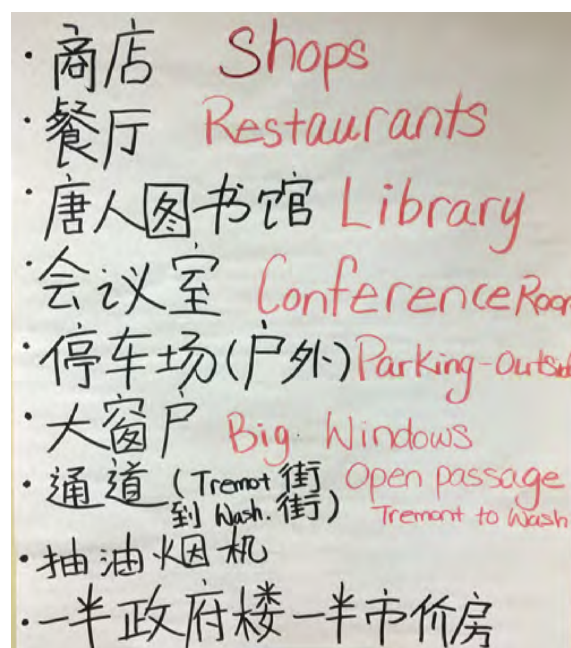 · 商店 Shops
· 餐厅 Restaurants
· 唐人图书馆 Library
· 会议室 Conference Room
· 停车场(户外) Parking-Outsid
· 大窗户 Big Windows
· 通道 (Tremot 街 Open passage
到 Wash. 街) Tremont to Wash
· 抽油烟机
· 一半政府楼一半市价房